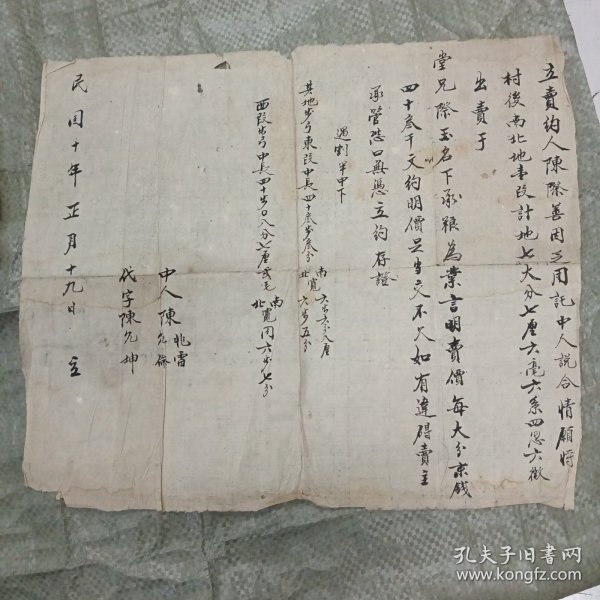 立賣約人陳際善因乏用託中人說合情願將
村後南北地壹段計地七大分七厘六毫六系四忽六微
出賣于
堂兄際玉名下承粮為業言明賣價每大分京錢
四十叁千文約明價足當交不欠如有違碍賣主
承管恐口無憑立約存證
過割半中下
其地步弓東段中長四十叁步叁分 南寬六步六分八厘 北六步五分
西段步弓中長四十步〇八分七厘 南北寬同六步七分
中人陳兆雪
允修
代字陳允坤
民國十年正月十九日 立
孔夫子旧书网
www.kongfz.com